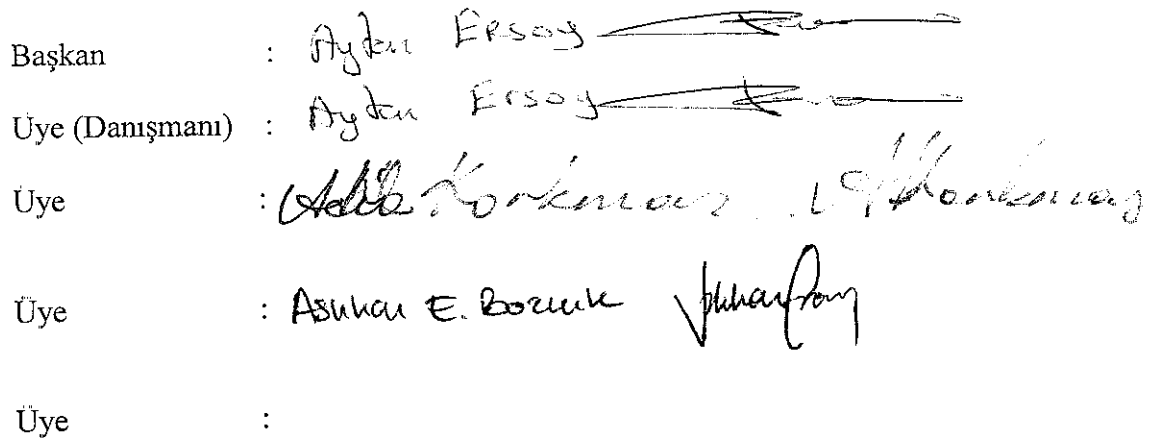 Başkan : Ayten Ersoy
Üye (Danışmanı) : Ayten Ersoy
Üye : Adila Korkmaz Korkmaz
Üye : Aslıhan E. Bozcuk
Üye :